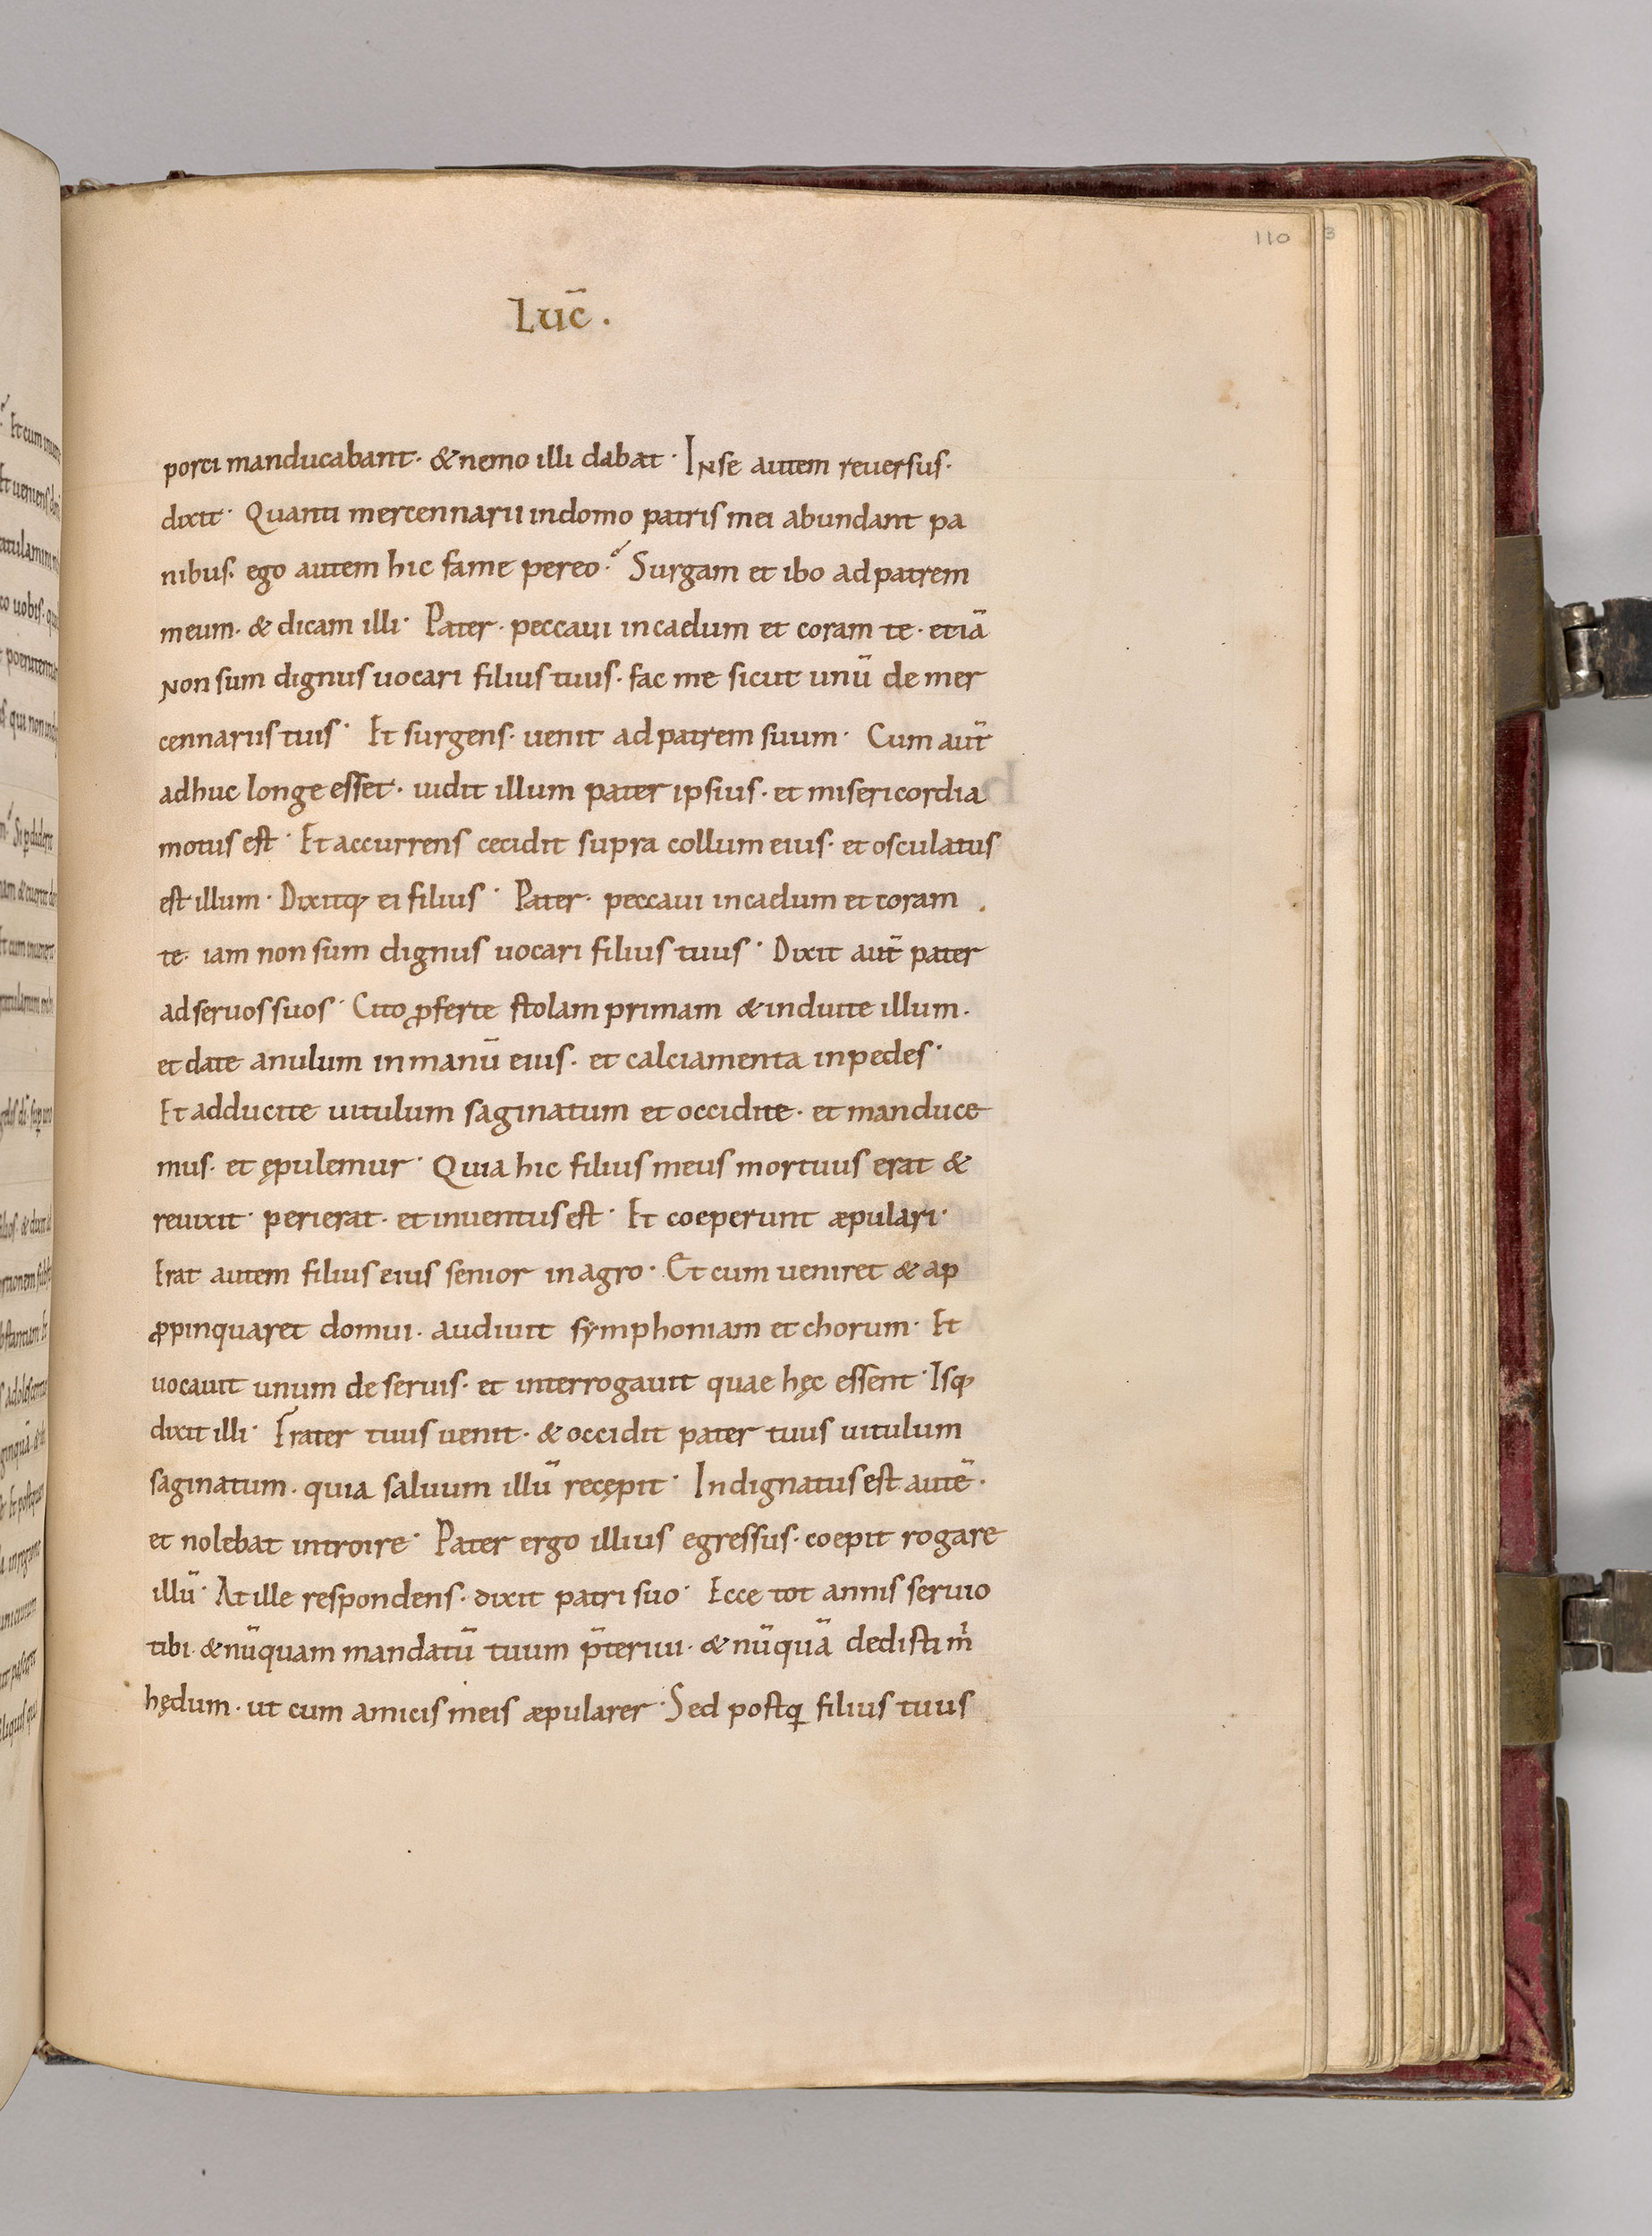 110 3
Luc̄.
porci manducabant· & nemo illi dabat· In se autem reuersus·
dixit· Quanti mercennarii in domo patris mei abundant pa
nibus· ego autem hic fame pereo·́ Surgam et ibo ad patrem
meum· & dicam illi· Pater· peccaui in caelum et coram te· etiā
Non sum dignus uocari filius tuus· fac me sicut unū de mer
cennariis tuis· Et surgens· uenit ad patrem suum· Cum aut̄
adhuc longe esset· uidit illum pater ipsius· et misericordia
motus est· Et accurrens cecidit supra collum eius· et osculatus
est illum· Dixitq; ei filius· Pater· peccaui in caelum et coram
te· iam non sum dignus uocari filius tuus· Dixit aut̄ pater
ad seruos suos· Cito ꝓferte stolam primam & induite illum·
et date anulum in manū eius· et calciamenta in pedes·
Et adducite uitulum saginatum et occidite· et manduce
mus· et ępulemur· Quia hic filius meus mortuus erat &
reuixit· perierat· et inuentus est· Et coeperunt æpulari·
Erat autem filius eius senior in agro· Et cum ueniret & ap
ꝓpinquaret domui· audiuit symphoniam et chorum· Et
uocauit unum de seruis· et interrogauit quae hęc essent· Isq;
dixit illi· Frater tuus uenit· & occidit pater tuus uitulum
saginatum· quia saluum illū recępit· Indignatus est autē·
et nolebat introire· Pater ergo illius egressus· coepit rogare
illū· At ille respondens· dixit patri suo· Ecce tot annis seruio
tibi· & nūquam mandatū tuum p̄teriui· & nūquā dedisti m̊
hędum· ut cum amicis meis æpularer· Sed postꝗ filius tuus